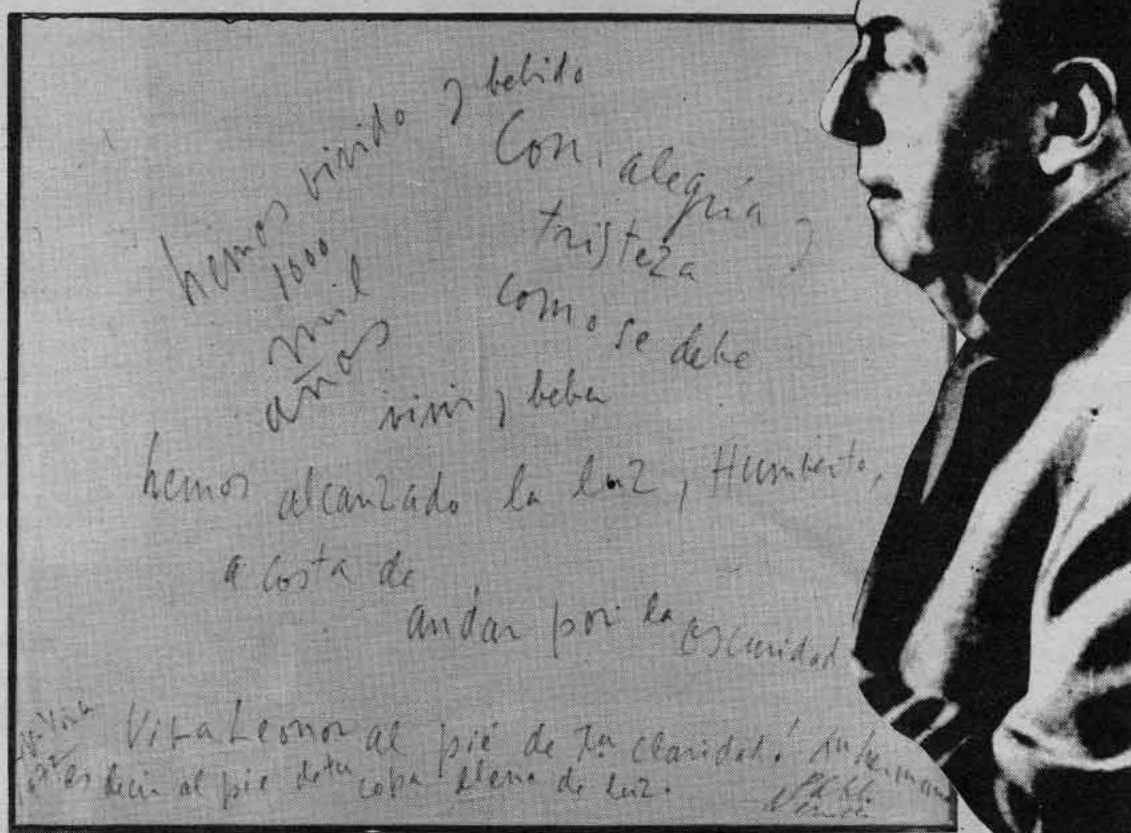 hemos vivido y bebido
1000
mil
años
Con alegría y
tristeza
como se debe
vivir y beber
hemos alcanzado la luz, Humberto,
a costa de
andar por la oscuridad
Viva Leonor al pié de la claridad! tu hermano
es decir al pie de tu copa llena de luz.
Pablo
Neruda